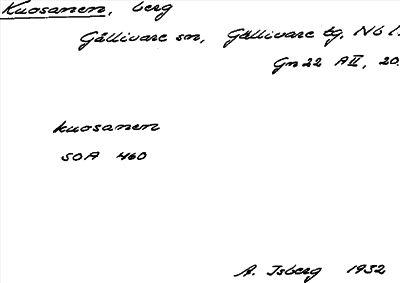 Kuosanen, berg
Gällivare sn, Gällivare tg, Nb l.
Gn 22 AII, 20.
kuosanen
SOA 460
A. Isberg 1932